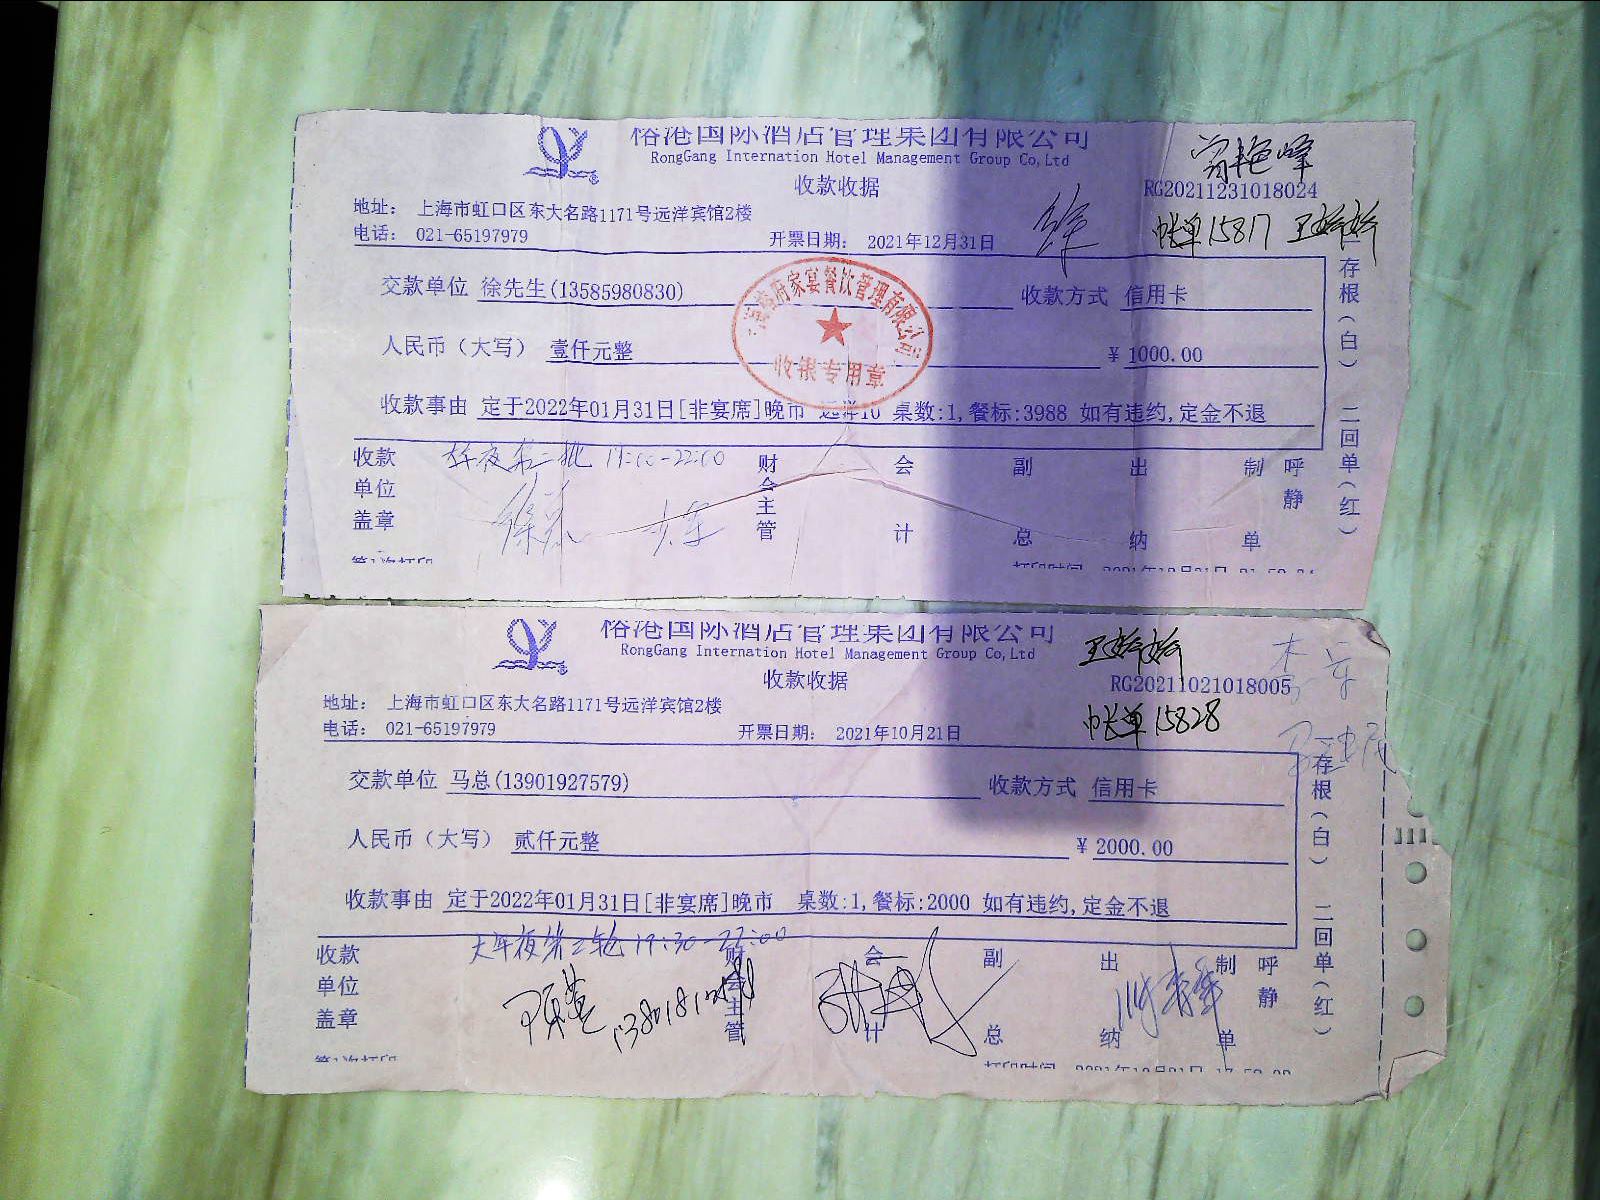 榕港国际酒店管理集团有限公司
RongGang Internation Hotel Management Group Co,Ltd
收款收据
RG20211231018024
地址： 上海市虹口区东大名路1171号远洋宾馆2楼
帐单15817 王婷婷
电话： 021-65197979 开票日期： 2021年12月31日
交款单位 徐先生(13585980830) 收款方式 信用卡
人民币（大写） 壹仟元整 ￥1000.00
收款事由 定于2022年01月31日[非宴席]晚市 远洋10 桌数:1,餐标:3988 如有违约,定金不退
家宴餐饮管理有限公司
收银专用章
一存根（白） 二回单（红）
19:00-22:00
收款单位盖章 财会主管 会计 副总 出纳 制单 呼静
第1次打印 打印时间 2021年12月31日
榕港国际酒店管理集团有限公司
RongGang Internation Hotel Management Group Co,Ltd
王婷婷
收款收据
RG20211021018005
地址： 上海市虹口区东大名路1171号远洋宾馆2楼
帐单15828
电话： 021-65197979 开票日期： 2021年10月21日
交款单位 马总(13901927579) 收款方式 信用卡
人民币（大写） 贰仟元整 ￥2000.00
收款事由 定于2022年01月31日[非宴席]晚市 桌数:1,餐标:2000 如有违约,定金不退
一存根（白） 二回单（红）
大年夜第二轮 19:30-22:00
收款单位盖章 财会主管 会计 副总 出纳 制单 呼静
第1次打印 打印时间 2021年10月21日